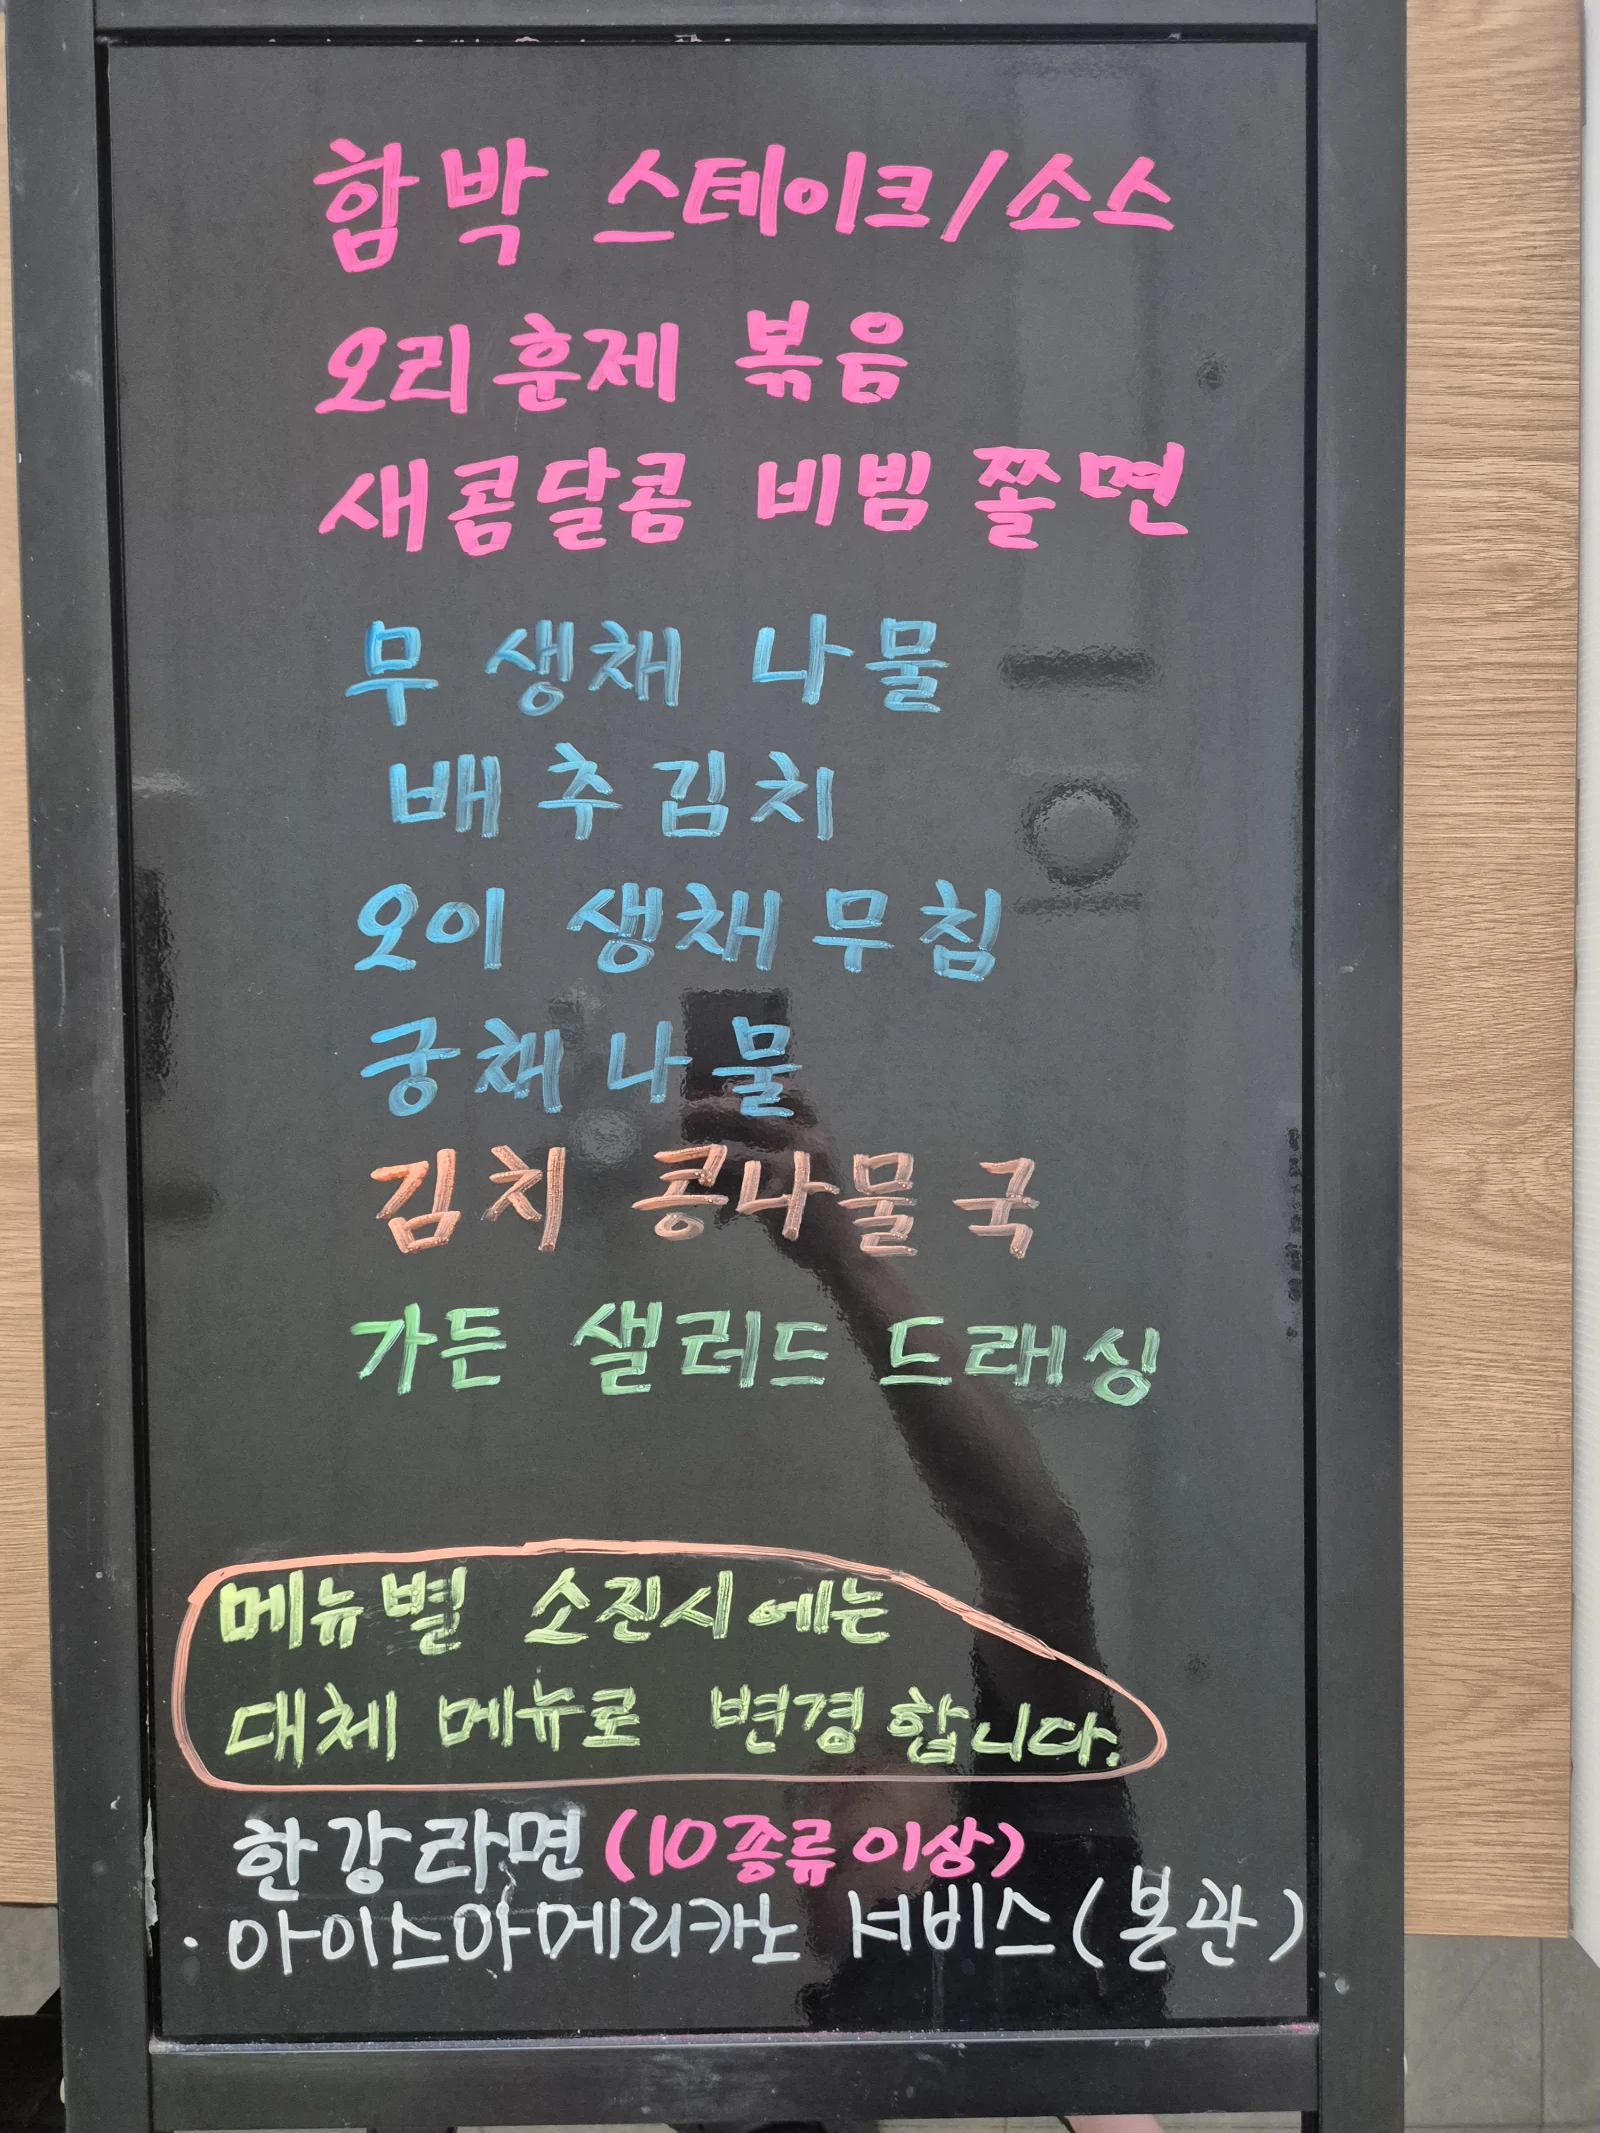 함박 스테이크/소스
오리훈제 볶음
새콤달콤 비빔쫄면
무 생채 나물
배추김치
오이 생채무침
궁채나물
김치 콩나물국
가든 샐러드 드래싱
메뉴별 소진시에는
대체 메뉴로 변경합니다.
한강라면(10종류이상)
·아이스아메리카노 서비스(본관)